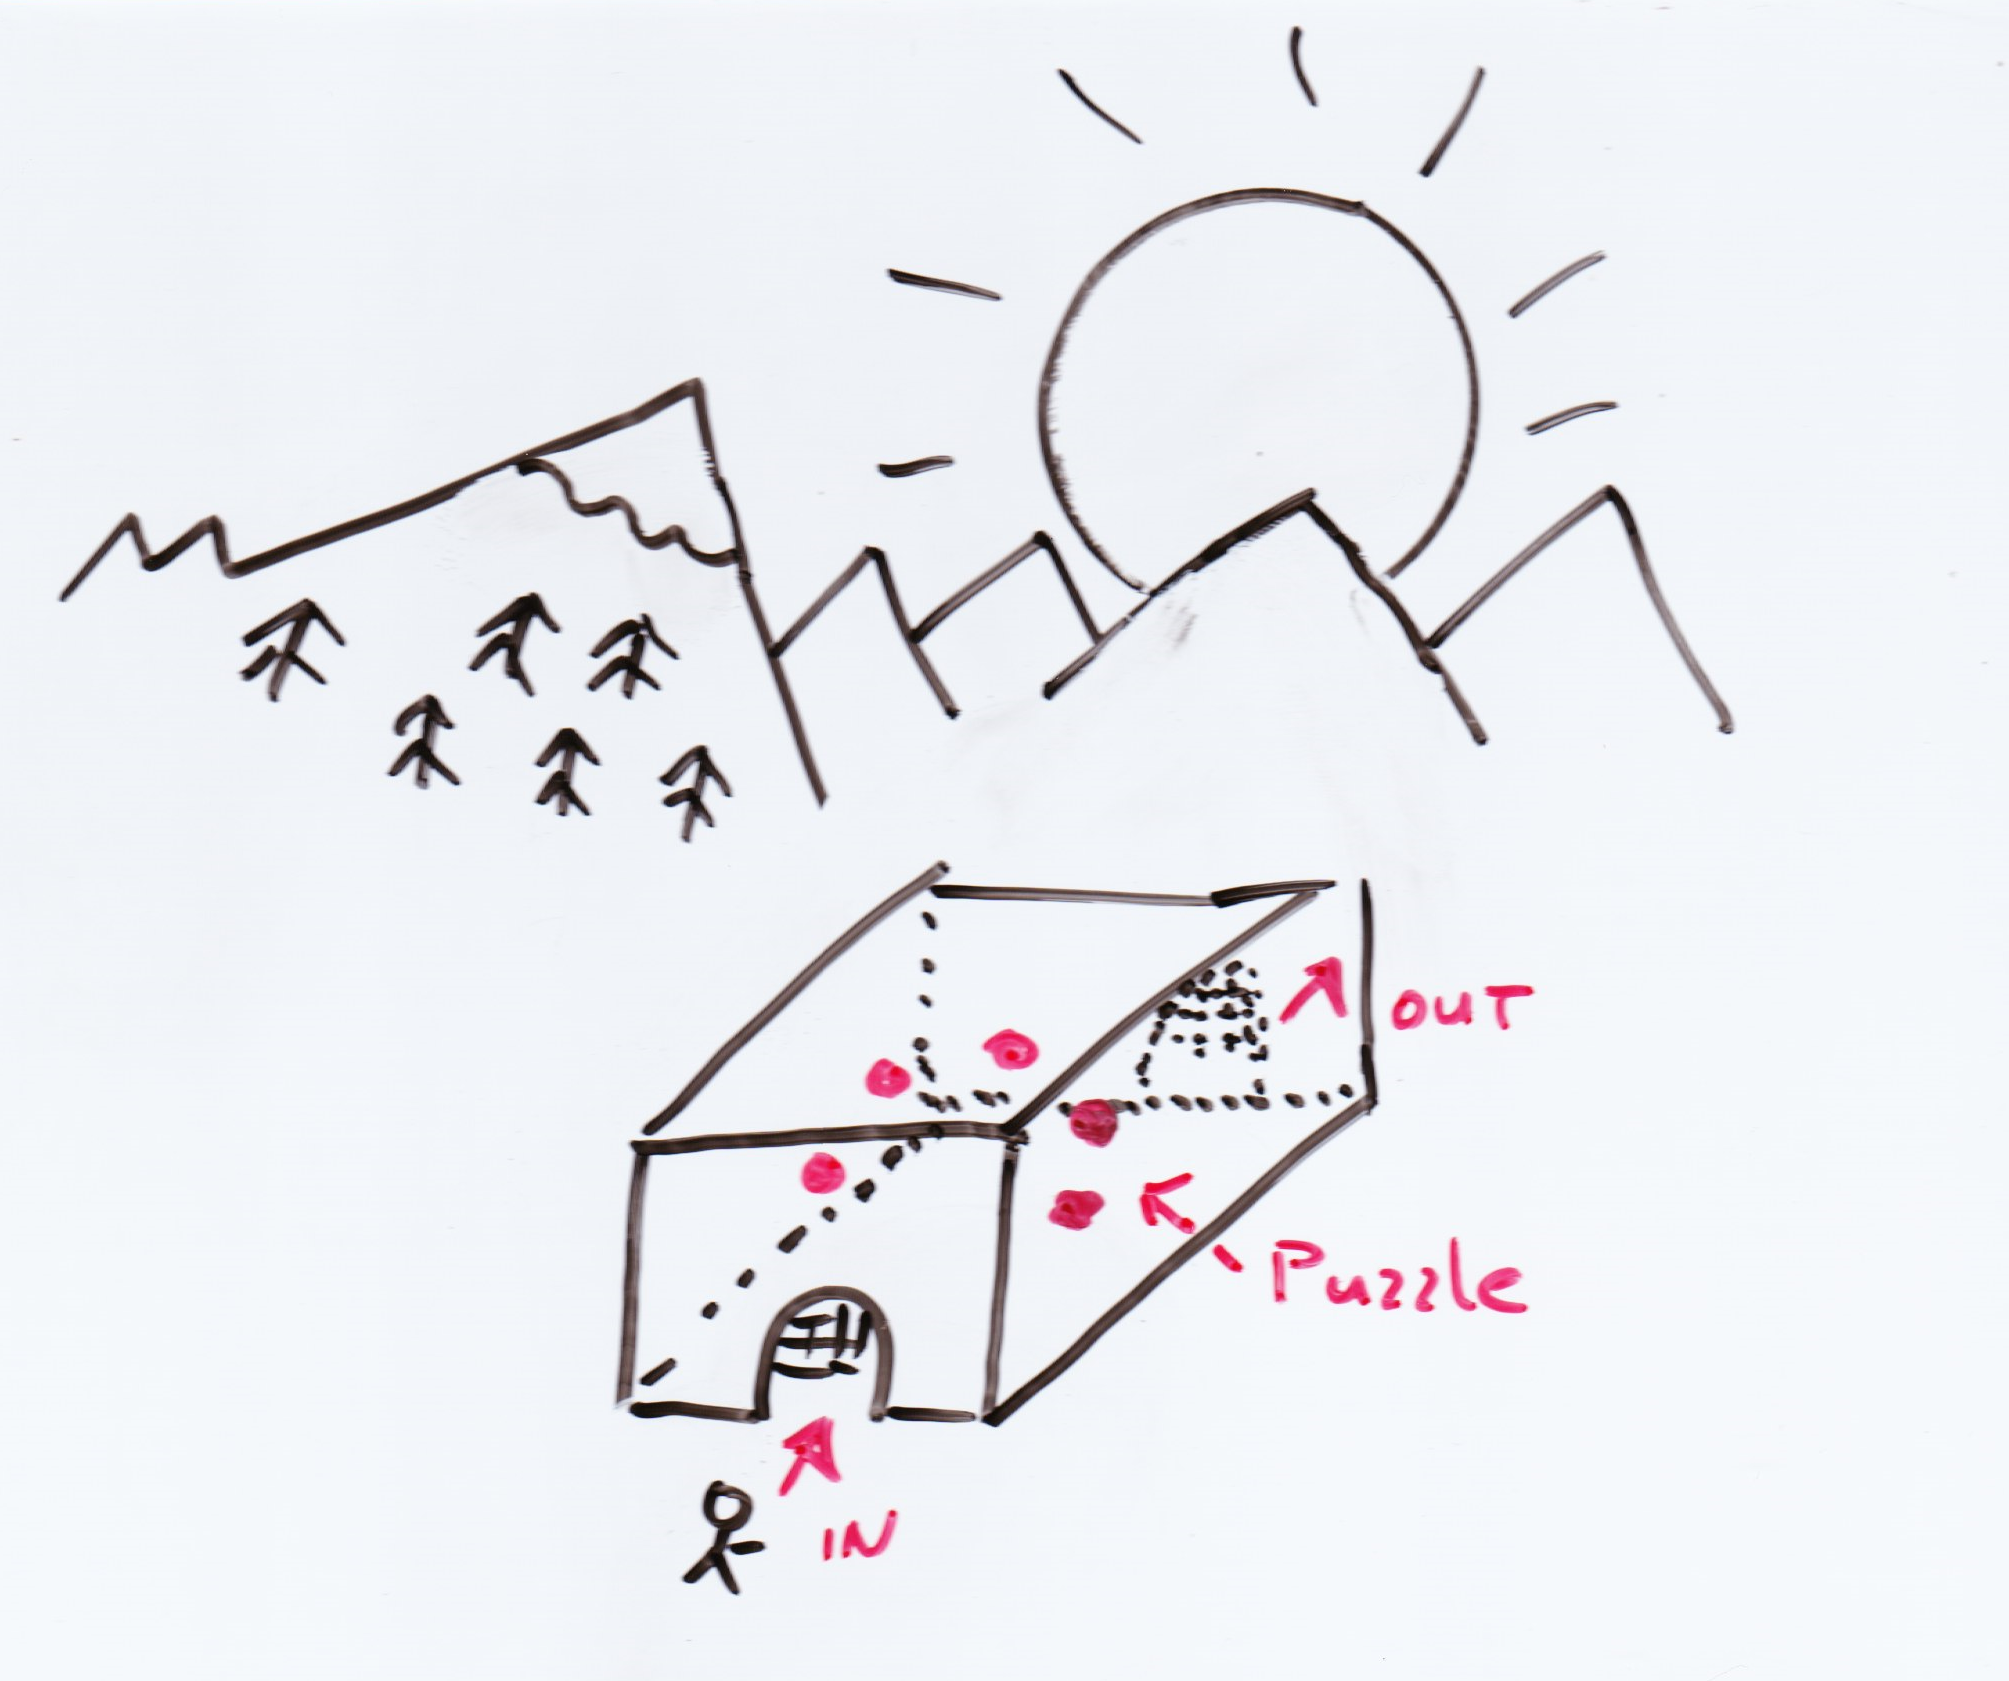 OUT
Puzzle
IN